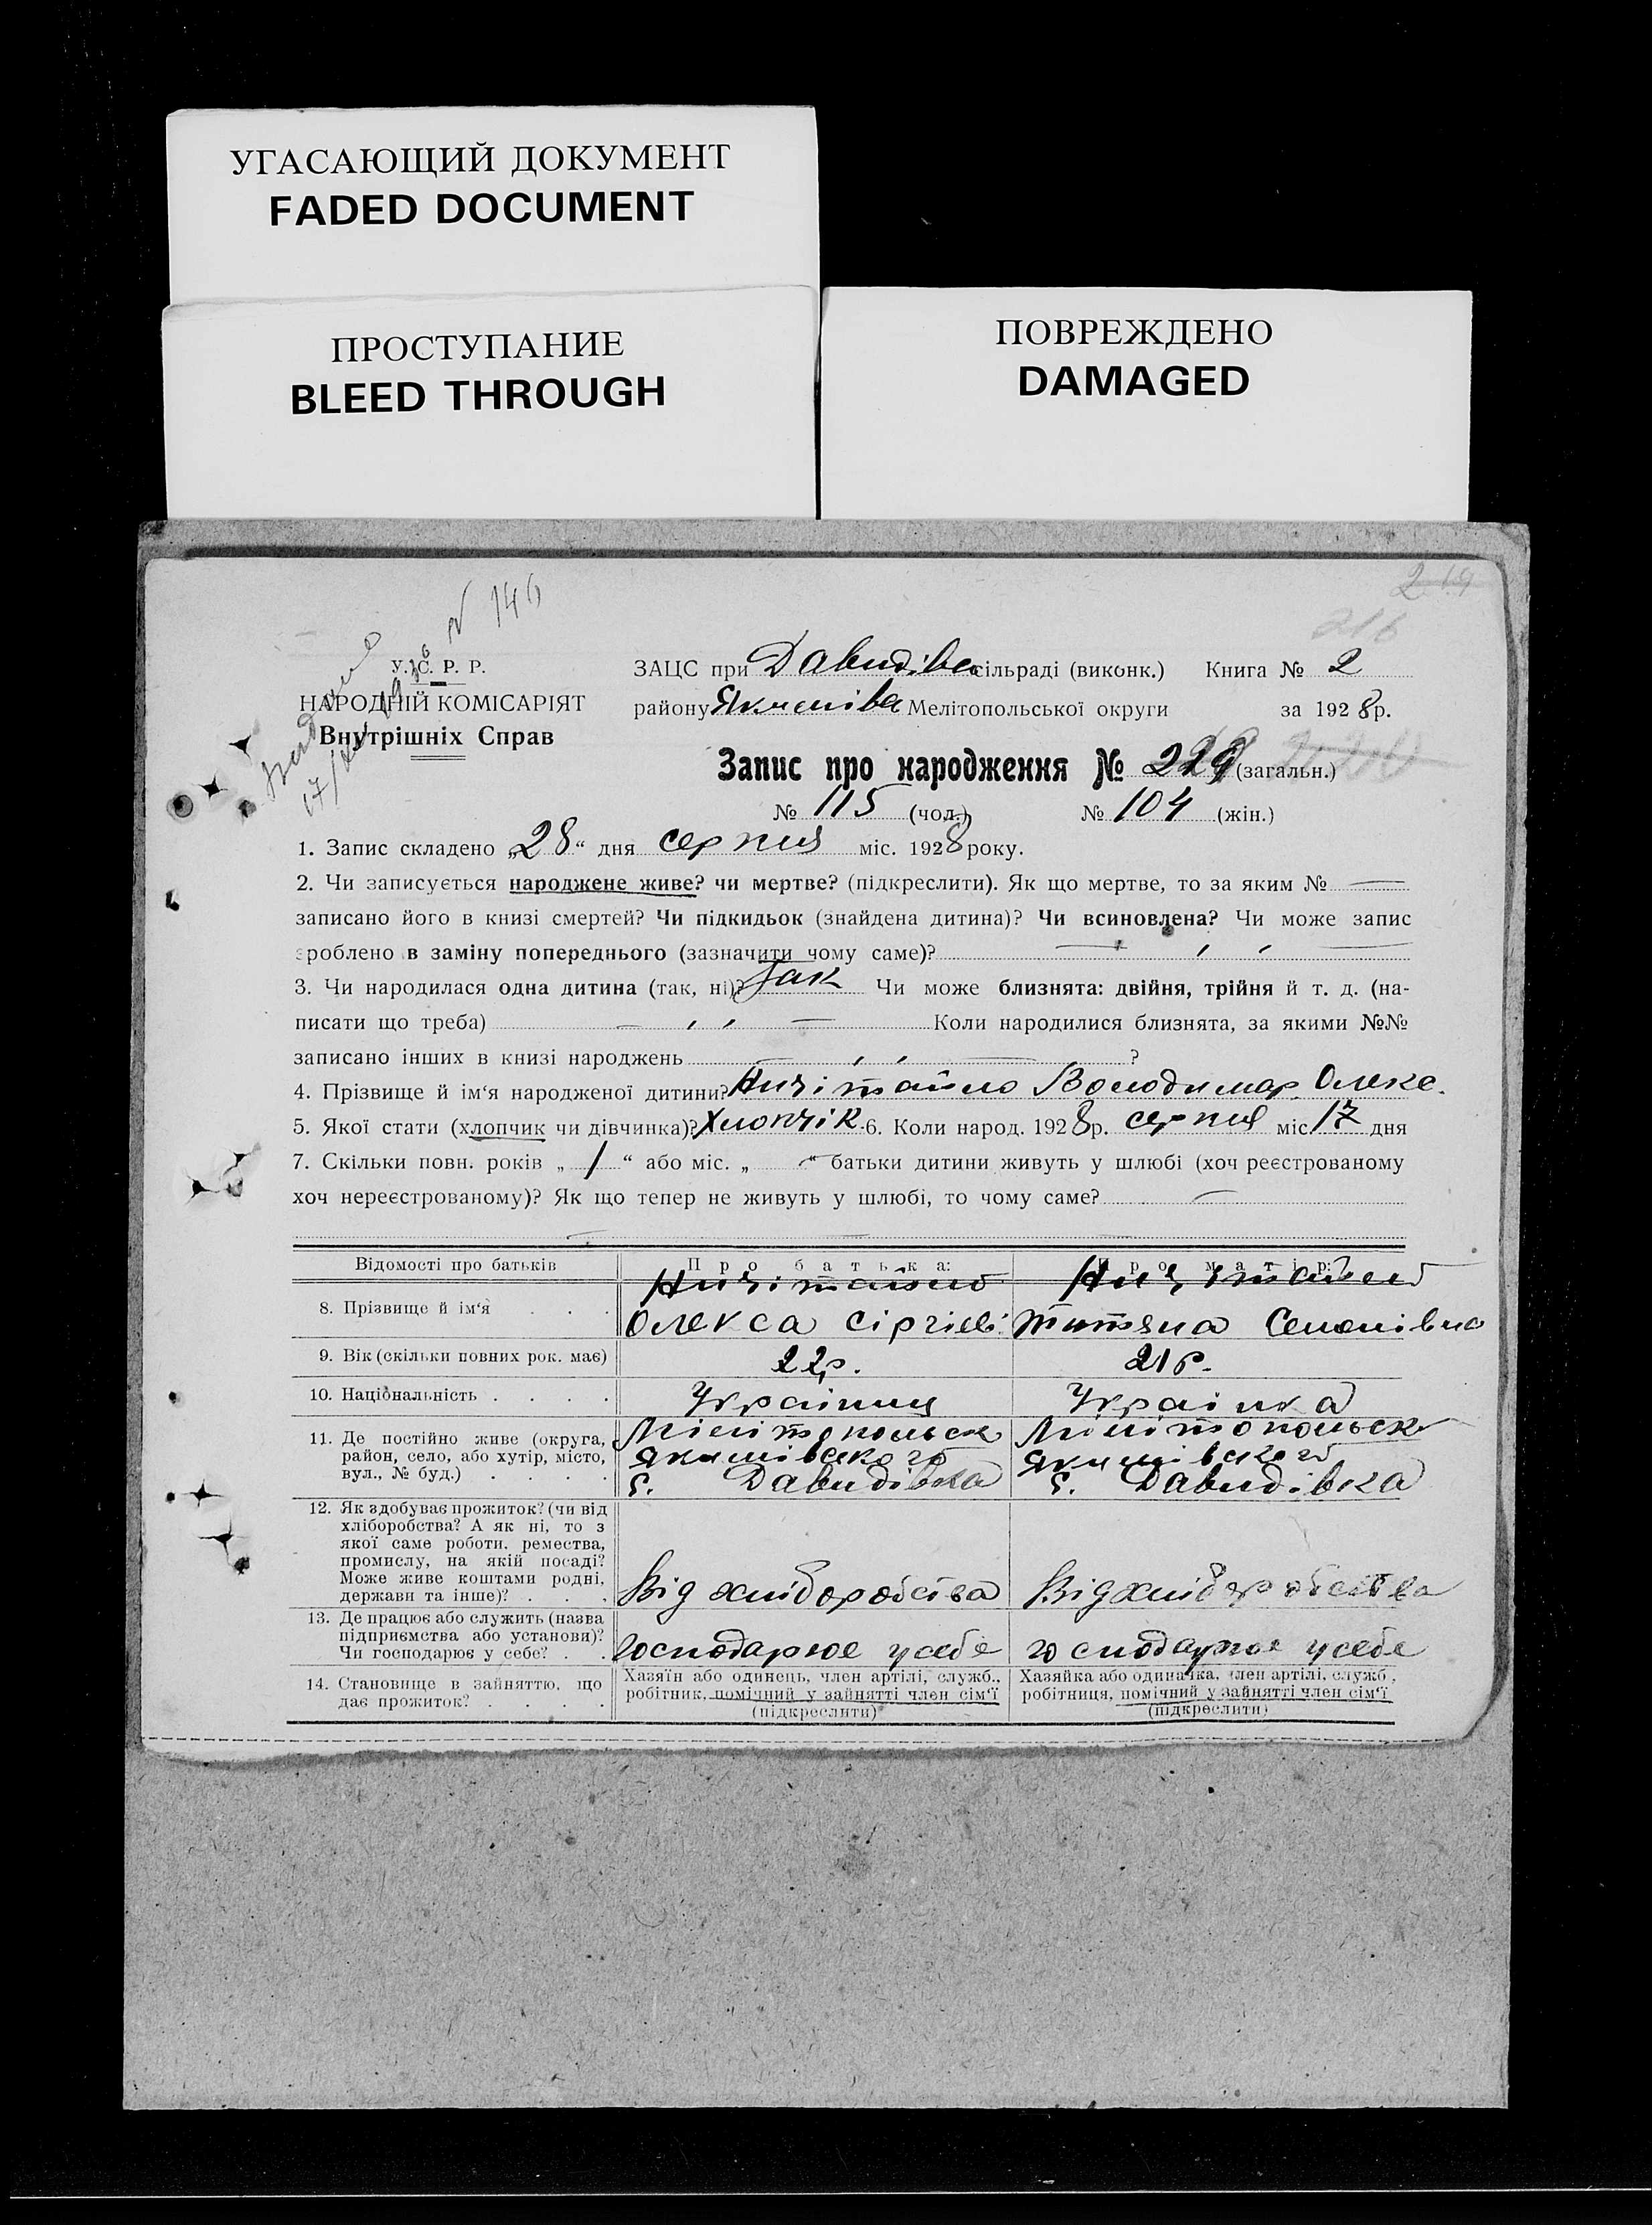 УГАСАЮЩИЙ ДОКУМЕНТ
FADED DOCUMENT
ПРОСТУПАНИЕ
BLEED THROUGH
ПОВРЕЖДЕНО
DAMAGED
216
№ 146
У. С. Р. Р.
НАРОДНІЙ КОМІСАРІЯТ
Внутрішніх Справ
ЗАЦС при Давидівс сільраді (виконк.) Книга № 2
району Мелітопольської округи за 1928 р.
Запис про народження № (загальн.)
№ 115 (чол.) № 104 (жін.)
1. Запис складено „28“ дня серпня міс. 1928 року.
2. Чи записується народжене живе? чи мертве? (підкреслити). Як що мертве, то за яким № —
записано його в книзі смертей? Чи підкидьок (знайдена дитина)? Чи всиновлена? Чи може запис
зроблено в заміну попереднього (зазначити чому саме)?
3. Чи народилася одна дитина (так, ні)? Так Чи може близнята: двійня, трійня й т. д. (на-
писати що треба) — „ — Коли народилися близнята, за якими №№
записано інших в книзі народжень — „ — ?
4. Прізвище й ім‘я народженої дитини? Володимар Олекс.
5. Якої стати (хлопчик чи дівчинка)? Хлопчік. 6. Коли народ. 1928 р. серпня міс. 17 дня
7. Скільки повн. років „ 1 “ або міс. „ “ батьки дитини живуть у шлюбі (хоч реєстрованому
хоч нереєстрованому)? Як що тепер не живуть у шлюбі, то чому саме? —
Відомості про батьків Про батька: Про матір:
8. Прізвище й ім‘я
Олекса Сіргіев. Титяна Семенівна
9. Вік (скільки повних рок. має) 22 р. 21 р.
10. Національність Українец Українка
11. Де постійно живе (округа, район, село, або хутір, місто, вул., № буд.)
Мілітопольск Мілітопольск
Якимівського Якимівського
с. Давидівка с. Давидівка
12. Як здобуває прожиток? (чи від
хліборобства? А як ні, то з
якої саме роботи, ремества,
промислу, на якій посаді?
Може живе коштами родні,
держави та інше)? Від хліборобства Від хліборобства
13. Де працює або служить (назва
підприємства або установи)?
Чи господарює у себе? господарює у себе господарює у себе
14. Становище в зайняттю, що
дає прожиток?
Хазяїн або одинець, член артілі, служб.,
робітник, помічний у зайнятті член сім‘ї
(підкреслити)
Хазяйка або одиначка, член артілі, служб.,
робітниця, помічний у зайнятті член сім‘ї
(підкреслити)